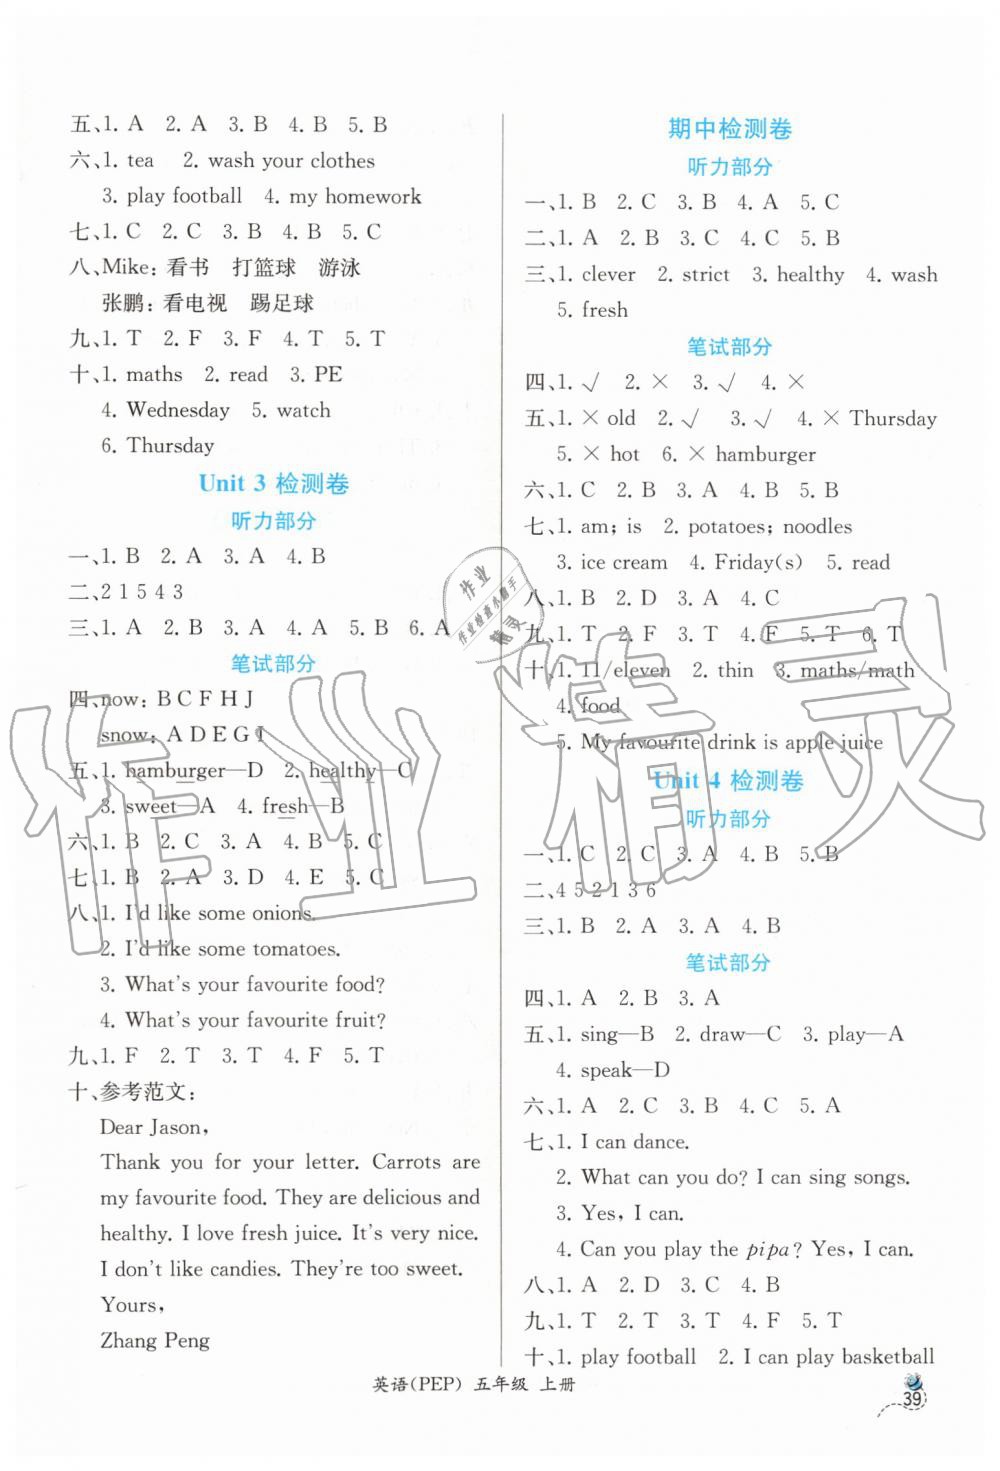 五、1. A 2. A 3. B 4. B 5. B
六、1. tea 2. wash your clothes
3. play football 4. my homework
七、1. C 2. C 3. B 4. B 5. C
八、Mike: 看书 打篮球 游泳
张鹏: 看电视 踢足球
九、1. T 2. F 3. F 4. T 5. T
十、1. maths 2. read 3. PE
4. Wednesday 5. watch
6. Thursday
Unit 3 检测卷
听力部分
一、1. B 2. A 3. A 4. B
二、2 1 5 4 3
三、1. A 2. B 3. A 4. B 5. B 6. A
笔试部分
四、now: B C F H J
snow: A D E G I
五、1. hamburger—D 2. healthy—C
3. sweet—A 4. fresh—B
六、1. B 2. C 3. A 4. B 5. C
七、1. B 2. A 3. D 4. E 5. C
八、1. I'd like some onions.
2. I'd like some tomatoes.
3. What's your favourite food?
4. What's your favourite fruit?
九、1. F 2. T 3. T 4. F 5. T
十、参考范文:
Dear Jason,
Thank you for your letter. Carrots are
my favourite food. They are delicious and
healthy. I love fresh juice. It's very nice.
I don't like candies. They're too sweet.
Yours,
Zhang Peng
期中检测卷
听力部分
一、1. B 2. C 3. B 4. A 5. C
二、1. A 2. B 3. A 4. C 5. B
三、1. clever 2. strict 3. healthy 4. wash
5. fresh
笔试部分
四、1. √ 2. × 3. √ 4. ×
五、1. × old 2. √ 3. √ 4. × Thursday
5. × hot 6. × hamburger
六、1. C 2. B 3. A 4. B 5. C
七、1. am; is 2. potatoes; noodles
3. ice cream 4. Friday(s) 5. read
八、1. B 2. D 3. A 4. C
九、1. T 2. F 3. T 4. F 5. T 6. T
十、1. 11/eleven 2. thin 3. maths/math
4. food
5. My favourite drink is apple juice
Unit 4 检测卷
听力部分
一、1. C 2. C 3. A 4. B 5. B
二、4 5 2 1 3 6
三、1. B 2. A 3. A 4. B
笔试部分
四、1. A 2. B 3. A
五、1. sing—B 2. draw—C 3. play—A
4. speak—D
六、1. A 2. C 3. B 4. C 5. A
七、1. I can dance.
2. What can you do? I can sing songs.
3. Yes, I can.
4. Can you play the pipa? Yes, I can.
八、1. A 2. D 3. C 4. B
九、1. T 2. T 3. T 4. F 5. T
十、1. play football 2. I can play basketball
英语(PEP) 五年级 上册
39
作业
作业检查小助手
精灵
作业精灵